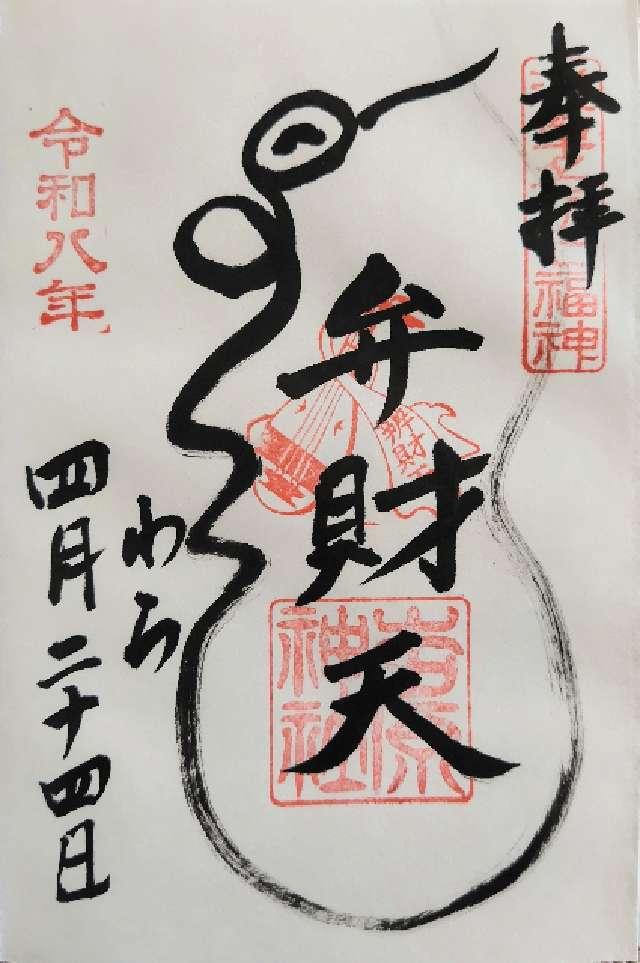 奉拝
福神
弁財天
辨財
吉原
神社
わら
令和八年
四月二十四日